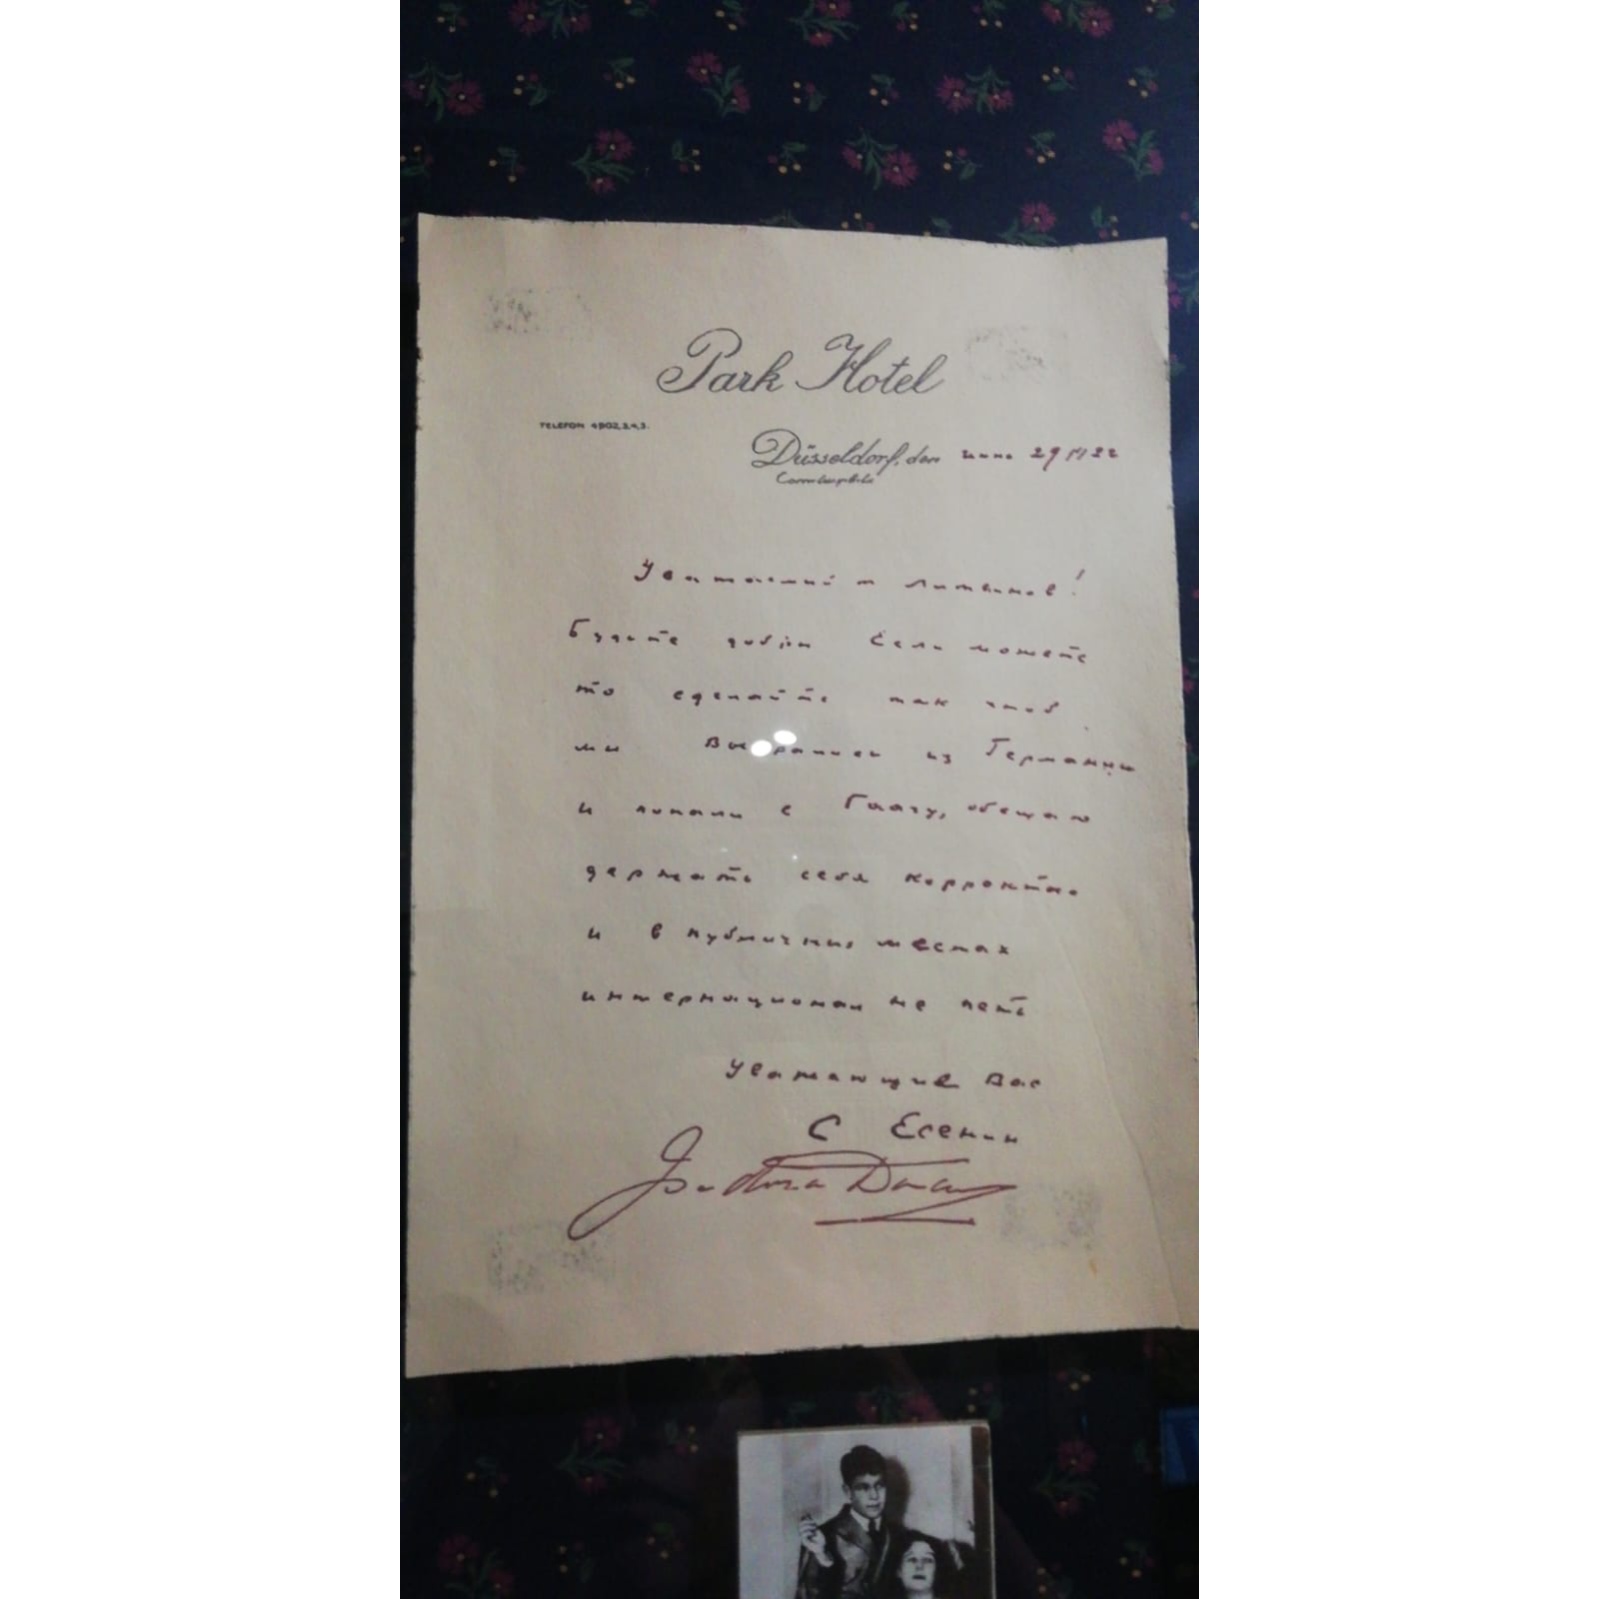 Park Hotel
TELEFON 4902,3,4,3.
Düsseldorf, den июнь 29 1922
Corneliusplatz
Уважаемый т Литвинов!
Будьте добры Если можете
то сделайте так чтоб
мы выбрались из Германии
и попали в Гаагу, обещаю
держать себя корректно
и в публичных местах
интернационал не петь
Уважающие Вас
С Есенин
Isadora Duncan